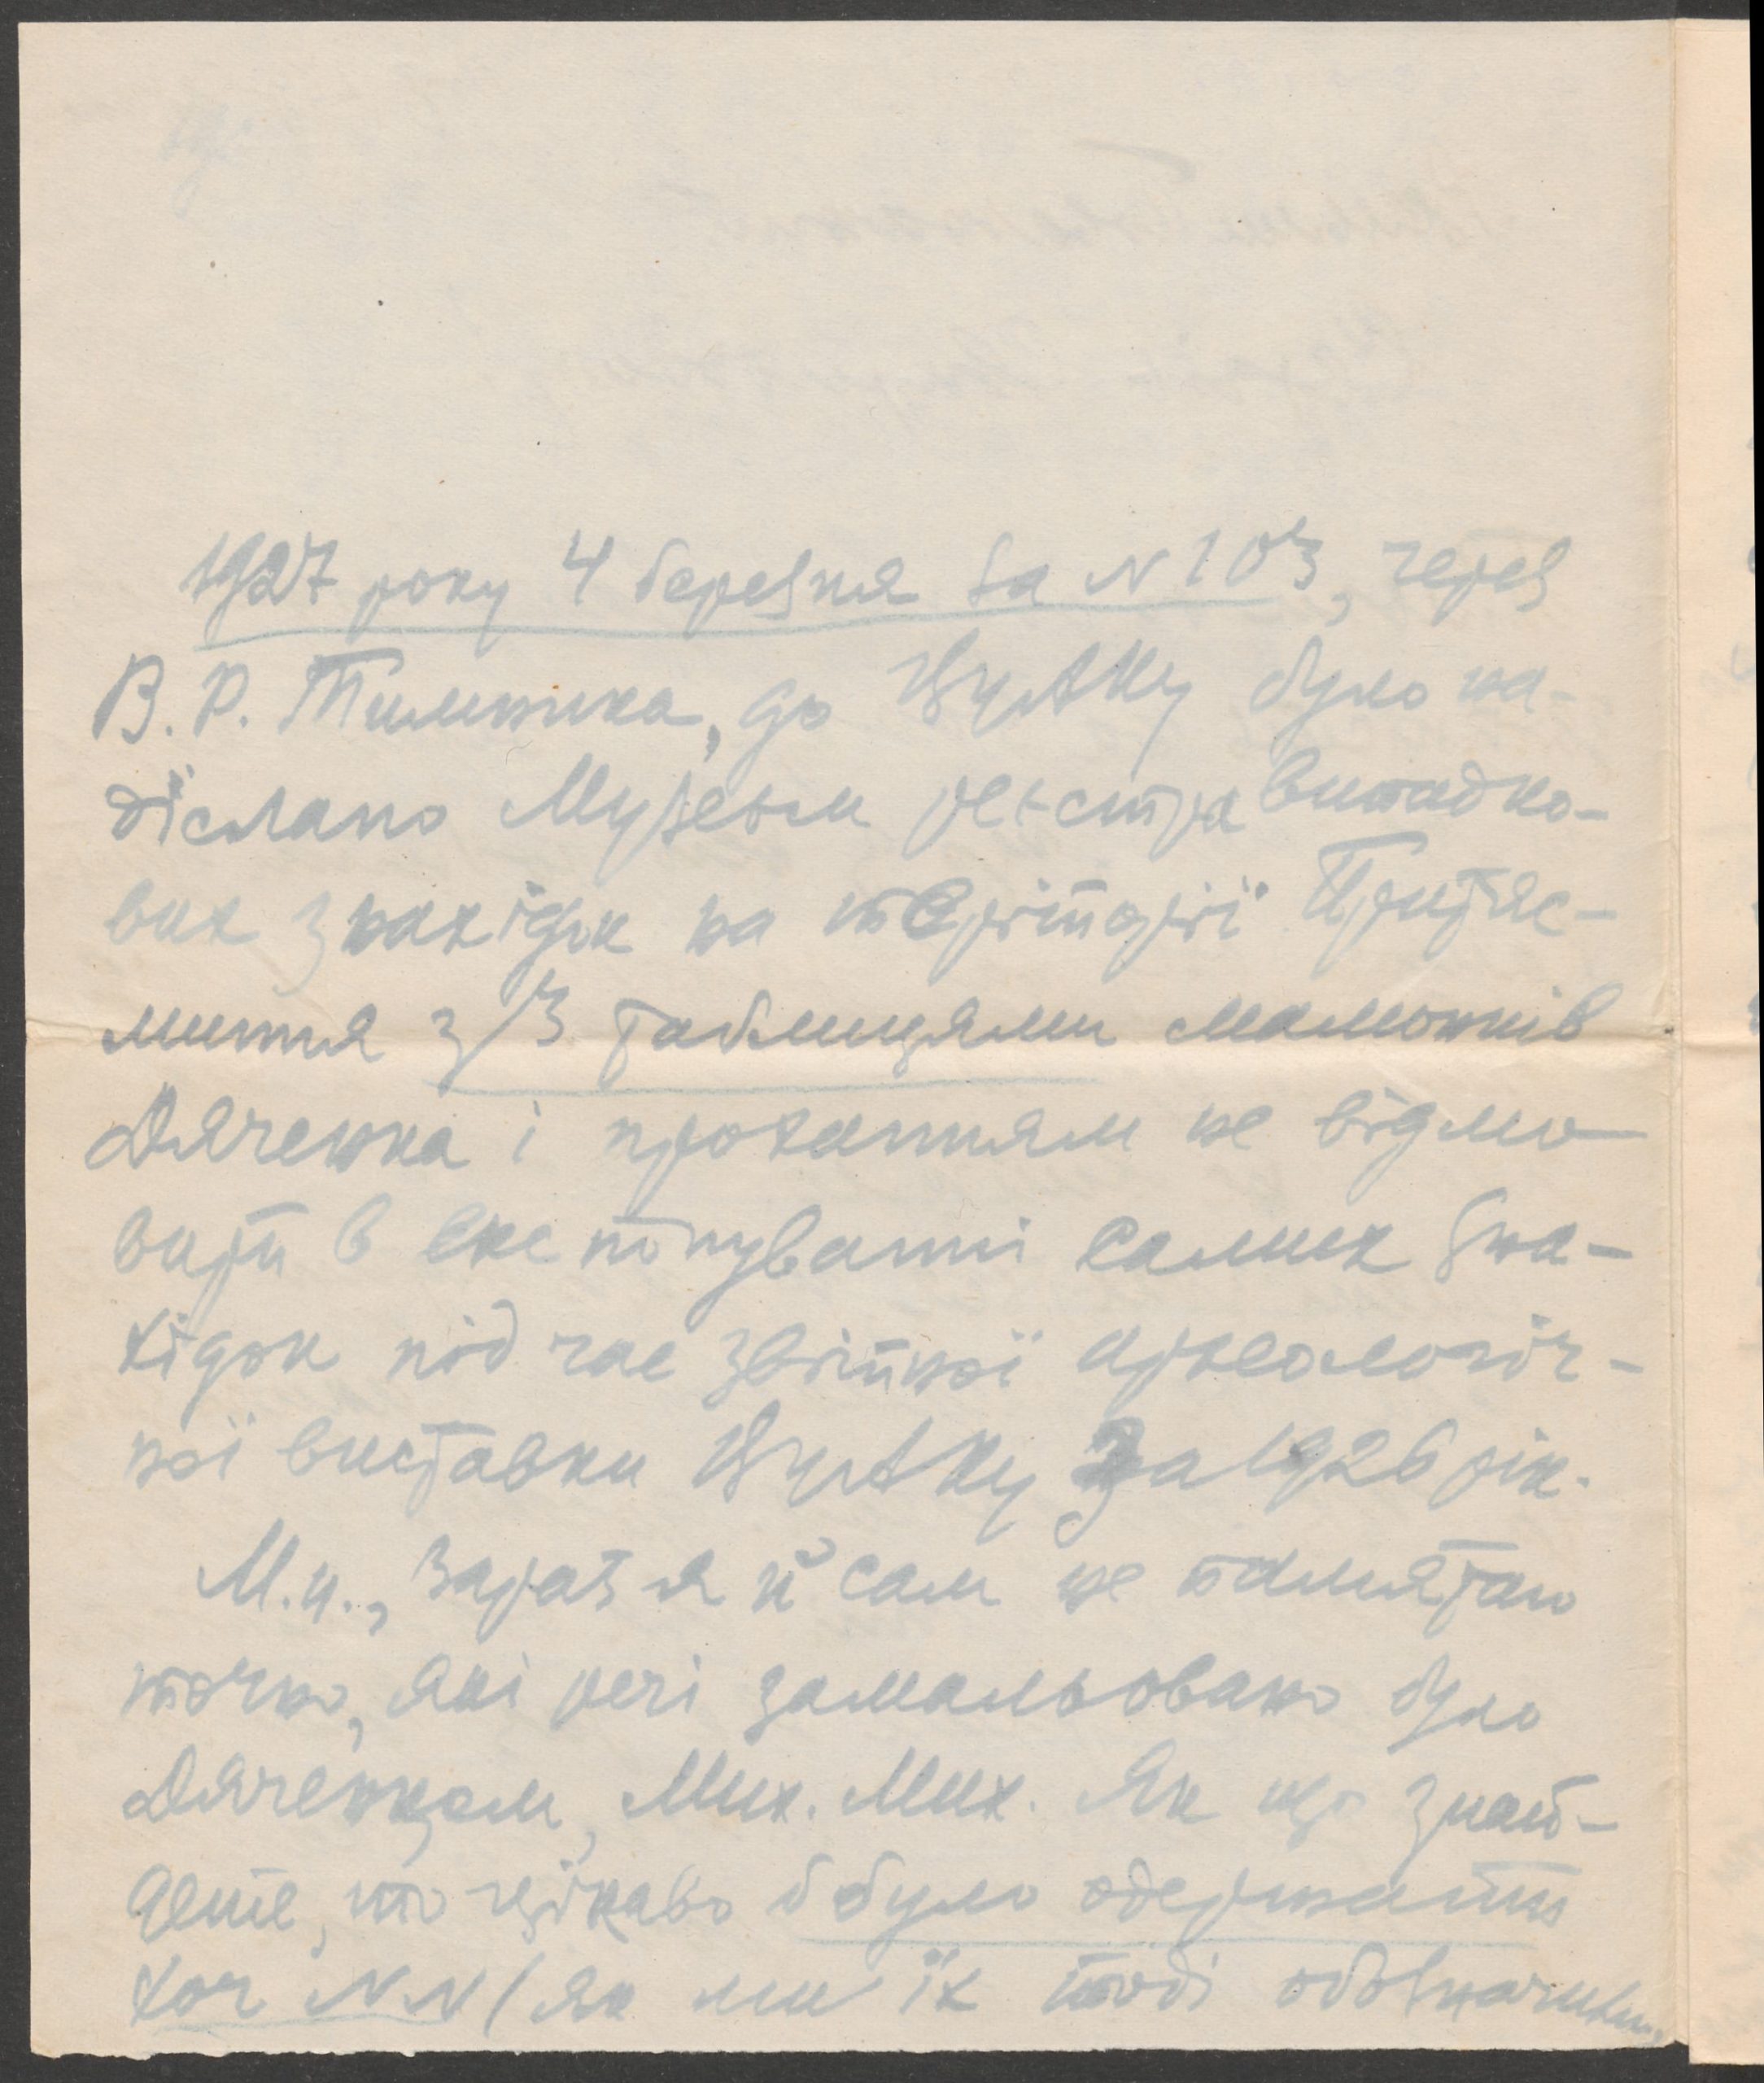 1927 року 4 березня за N 103, через
В. Р. Тимошика, до ВУАКу було на-
діслано Музеєм реєстра випадко-
вих знахідок на теріторії Притяс-
миння з 3 таблицями малюнків
Дяченка і проханням не відмо-
вити в експонуванні самих зна-
хідок під час звітної археологіч-
ної виставки ВУАКу за 1926 рік.
М. и., зараз я й сам не памятаю
точно, які речі замальовано було
Дяченком, Мих. Мих. Як що знай-
дете, то цікаво б було одержати
хоч NN (як ми їх тоді обозначили,